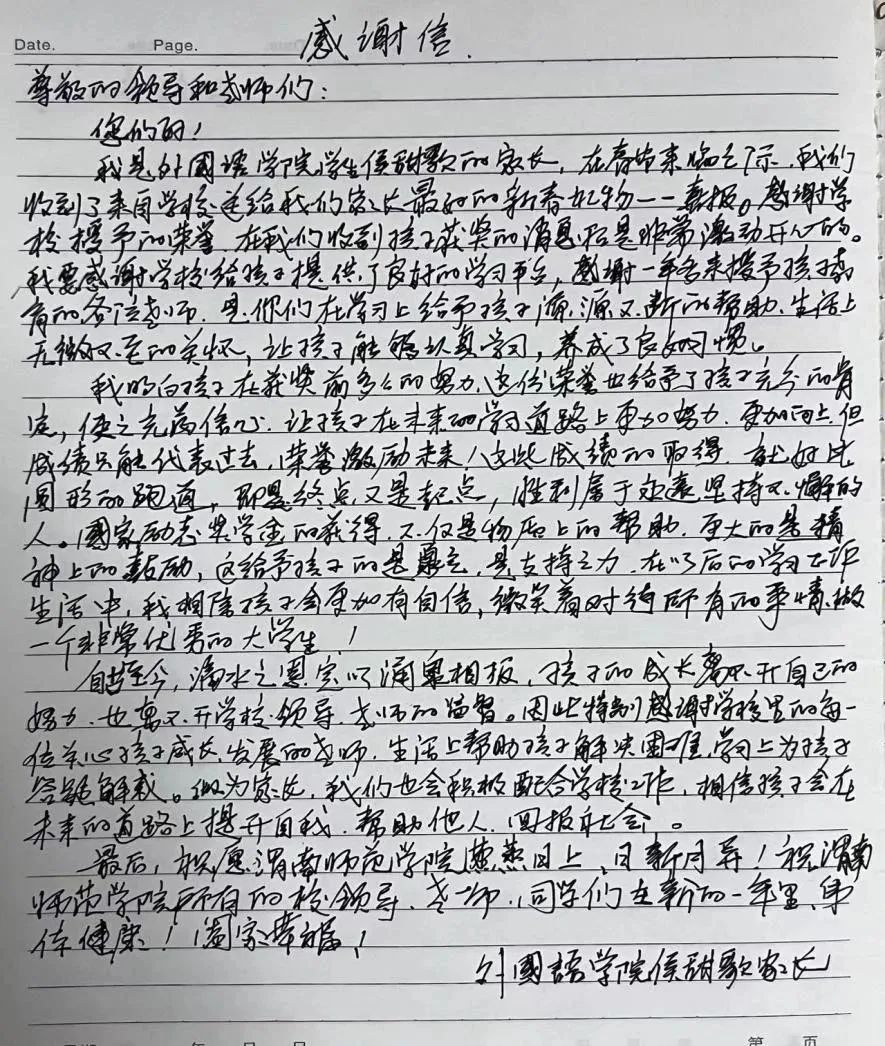 Date. Page. 感谢信.
尊敬的领导和老师们:
您们好!
我是外國語学院学生侯甜歌的家长,在春节来临之际,我们
收到了来自学校送给我们家长最好的新春礼物——喜报。感谢学
校授予的荣誉,在我们收到孩子获奖的消息后是非常激动开心的。
我要感谢学校给孩子提供了良好的学习平台,感谢一年多来授予孩子教
育的各位老师,是你们在学习上给予孩子源源不断的帮助、生活上
无微不至的关怀,让孩子能够认真学习,养成了良好习惯。
我明白孩子在获奖前多么的努力,这份荣誉也给予了孩子充分的肯
定,使之充满信心,让孩子在未来的学习道路上更加努力、更加向上,但
成绩只能代表过去,荣誉激励未来!这些成绩的取得,就好比
圆形的跑道,即是终点又是起点,胜利属于 坚持不懈的
人。國家励志奖学金的获得,不仅是物质上的帮助,更大的是精
神上的鼓励,这给予孩子的是 ,是支持之力,在以后的学习工作
生活中,我相信孩子会更加有自信,微笑着对待所有的事情,做
一个非常优秀的大学生!
自古至今,滴水之恩定以涌泉相报,孩子的成长离不开自己的
努力,也离不开学校领导、老师的 。因此特别感谢学校里的每一
位关心孩子成长、发展的老师,生活上帮助孩子解决困难,学习上为孩子
答疑解惑。做为家长,我们也会积极配合学校工作,相信孩子会在
未来的道路上提升自我、帮助他人、回报社会。
最后,祝愿渭南师范学院蒸蒸日上、日新月异!祝渭南
师范学院所有的校领导、老师、同学们在新的一年里,身
体健康!阖家幸福!
外國語学院侯甜歌家长
年 月 日 第 页